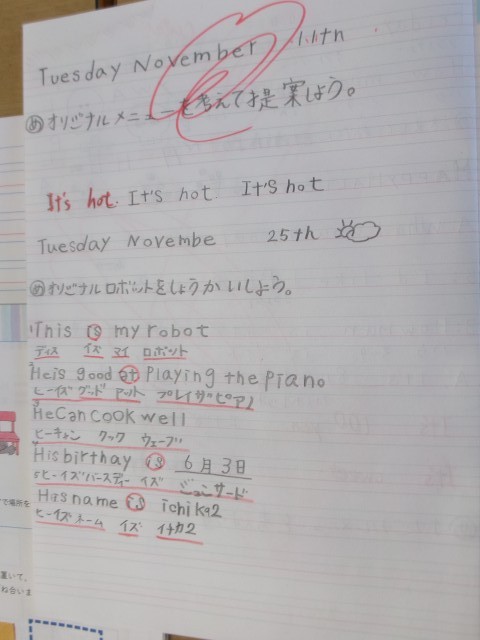 Tuesday November 11th
めオリジナルメニューを考えて提案しよう。
It's hot. It's hot It's hot
Tuesday Novembe 25th
めオリジナルロボットをしょうかいしよう。
1This is my robot
ディス イズ マイ ロボット
2Heis good at Playing the piano
ヒーイズグッド アット プレイザピアノ
3HeCan cook well
ヒーキャン クック ウェーブ
4Hisbirthay is 6月3日
ヒーイズバースディー イズ ジュンサード
5Hisname is ichika2
ヒーイズネーム イズ イチカ2
で場所を
置いて、
ね合いま